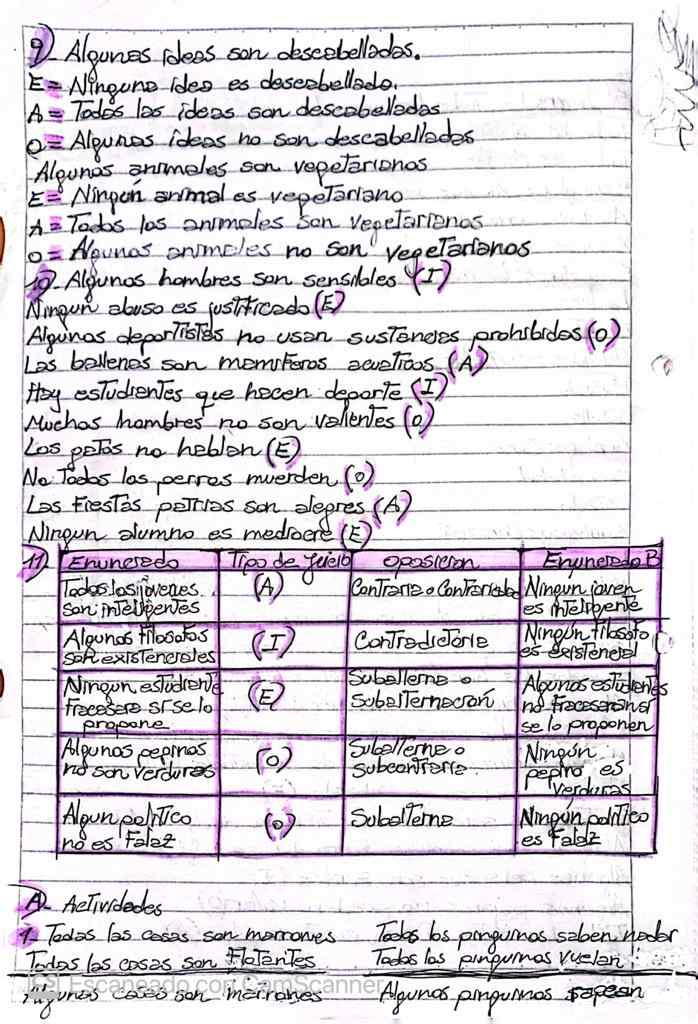 9- Algunas ideas son descabelladas.
E= Ninguna idea es descabellada.
A= Todas las ideas son descabelladas
O= Algunas ideas no son descabelladas
Algunos animales son vegetarianos
E= Ningún animal es vegetariano
A= Todos los animales son vegetarianos
O= Algunos animales no son vegetarianos
10- Algunos hombres son sensibles (I)
Ningun abuso es justificado (E)
Algunos deportistas no usan sustancias prohibidas (O)
Las ballenas son mamiferos acuaticos (A)
Hay estudiantes que hacen deporte (I)
Muchos hombres no son valientes (O)
Los gatos no hablan (E)
No Todos los perros muerden (O)
Las Fiestas patrias son alegres (A)
Ningun alumno es mediocre (E)
11) Enunciado Tipo de juicio oposicion Enunciado B
Todos los jovenes son inteligentes (A) Contraria o Contrariedad Ningun joven es inteligente
Algunos Filosofos son existenciales (I) Contradictoria Ningún filosofo es existencial
Ningun estudiante Fracasara si se lo propone (E) Subalterna o Subalternación Algunos estudiantes no fracasaran si se lo proponen
Algunos pepinos no son verduras (O) Subalterna o subcontraria Ningún pepino es verduras
Algun politico no es Falaz (O) Subalterna Ningún politico es Falaz
A- Actividades
1- Todas las casas son marrones Todos los pinguinos saben nadar
Todas las casas son Flotantes Todos los pinguinos vuelan
Algunas casas son marrones Algunos pinguinos
Escaneado con CamScanner